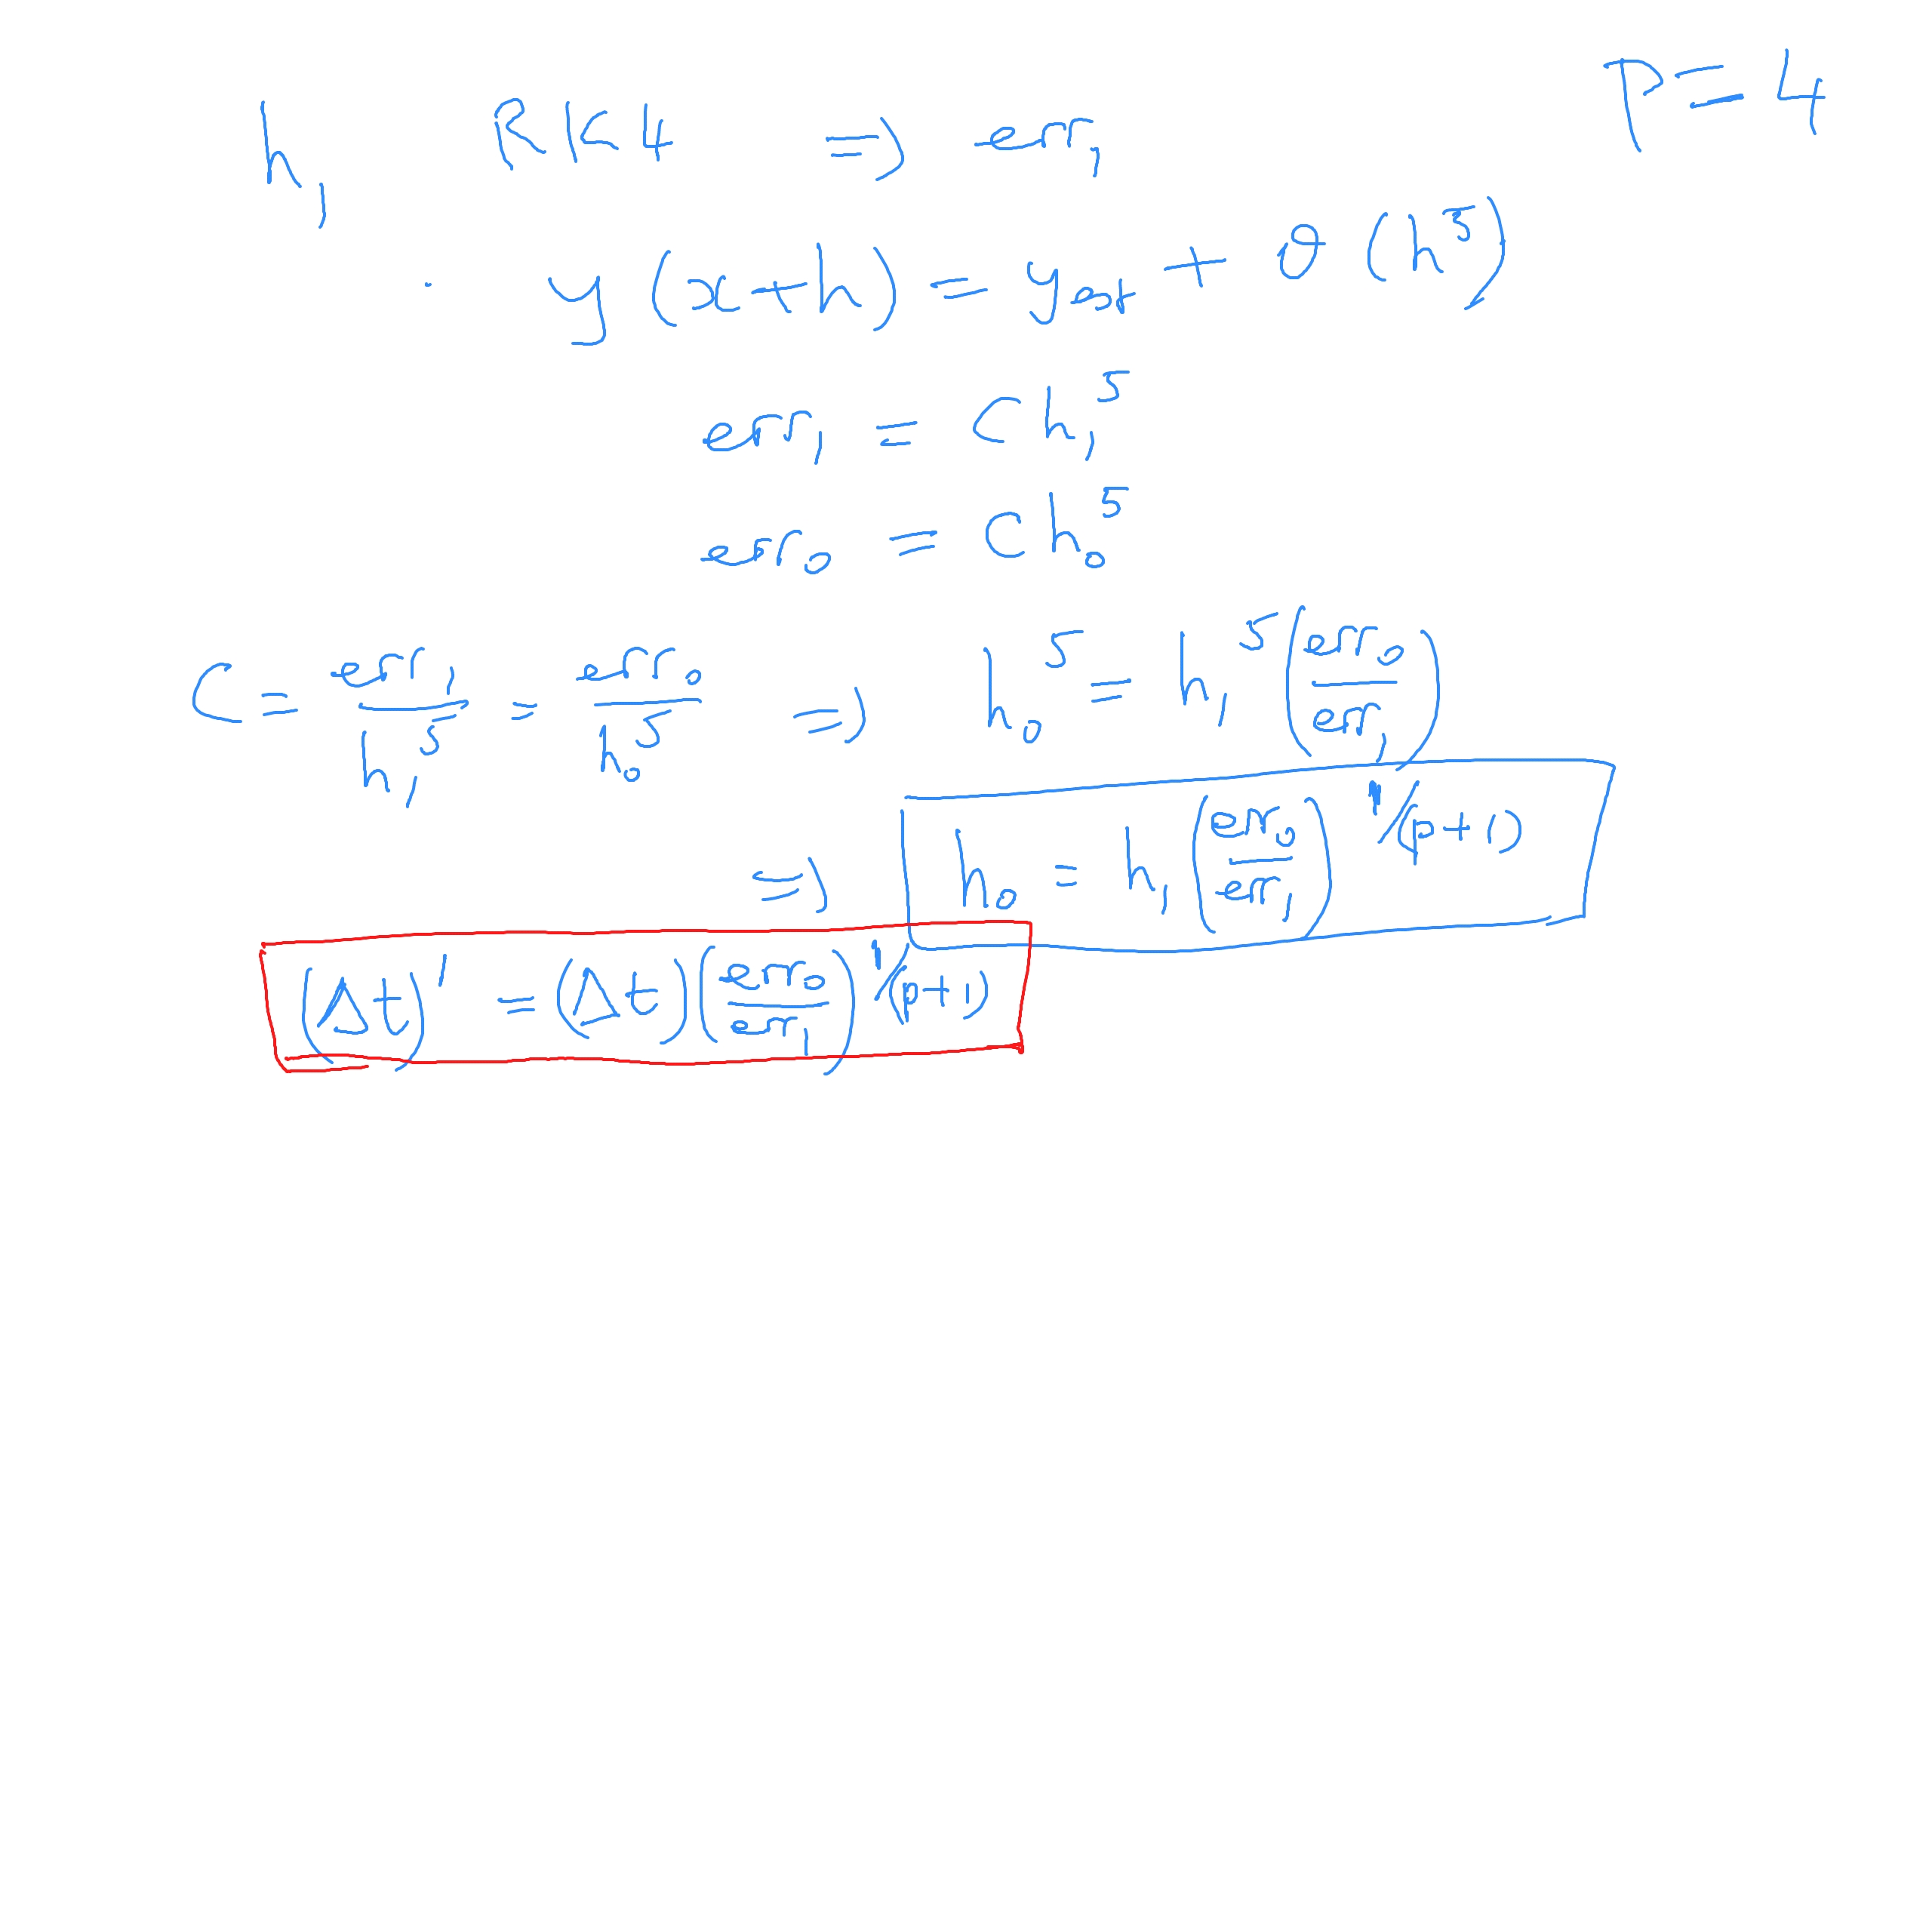 h₁ RK4 ⇒ err₁ P = 4
y(x+h) = yest + O(h⁵)
err₁ = Ch₁⁵
err₀ = Ch₀⁵
C = err₁/h₁⁵ = err₀/h₀⁵ ⇒ h₀⁵ = h₁⁵(err₀/err₁)
⇒ h₀ = h₁(err₀/err₁)^1/(p+1)
(Δt)' = (Δt)(err₀/err₁)^1/(p+1)